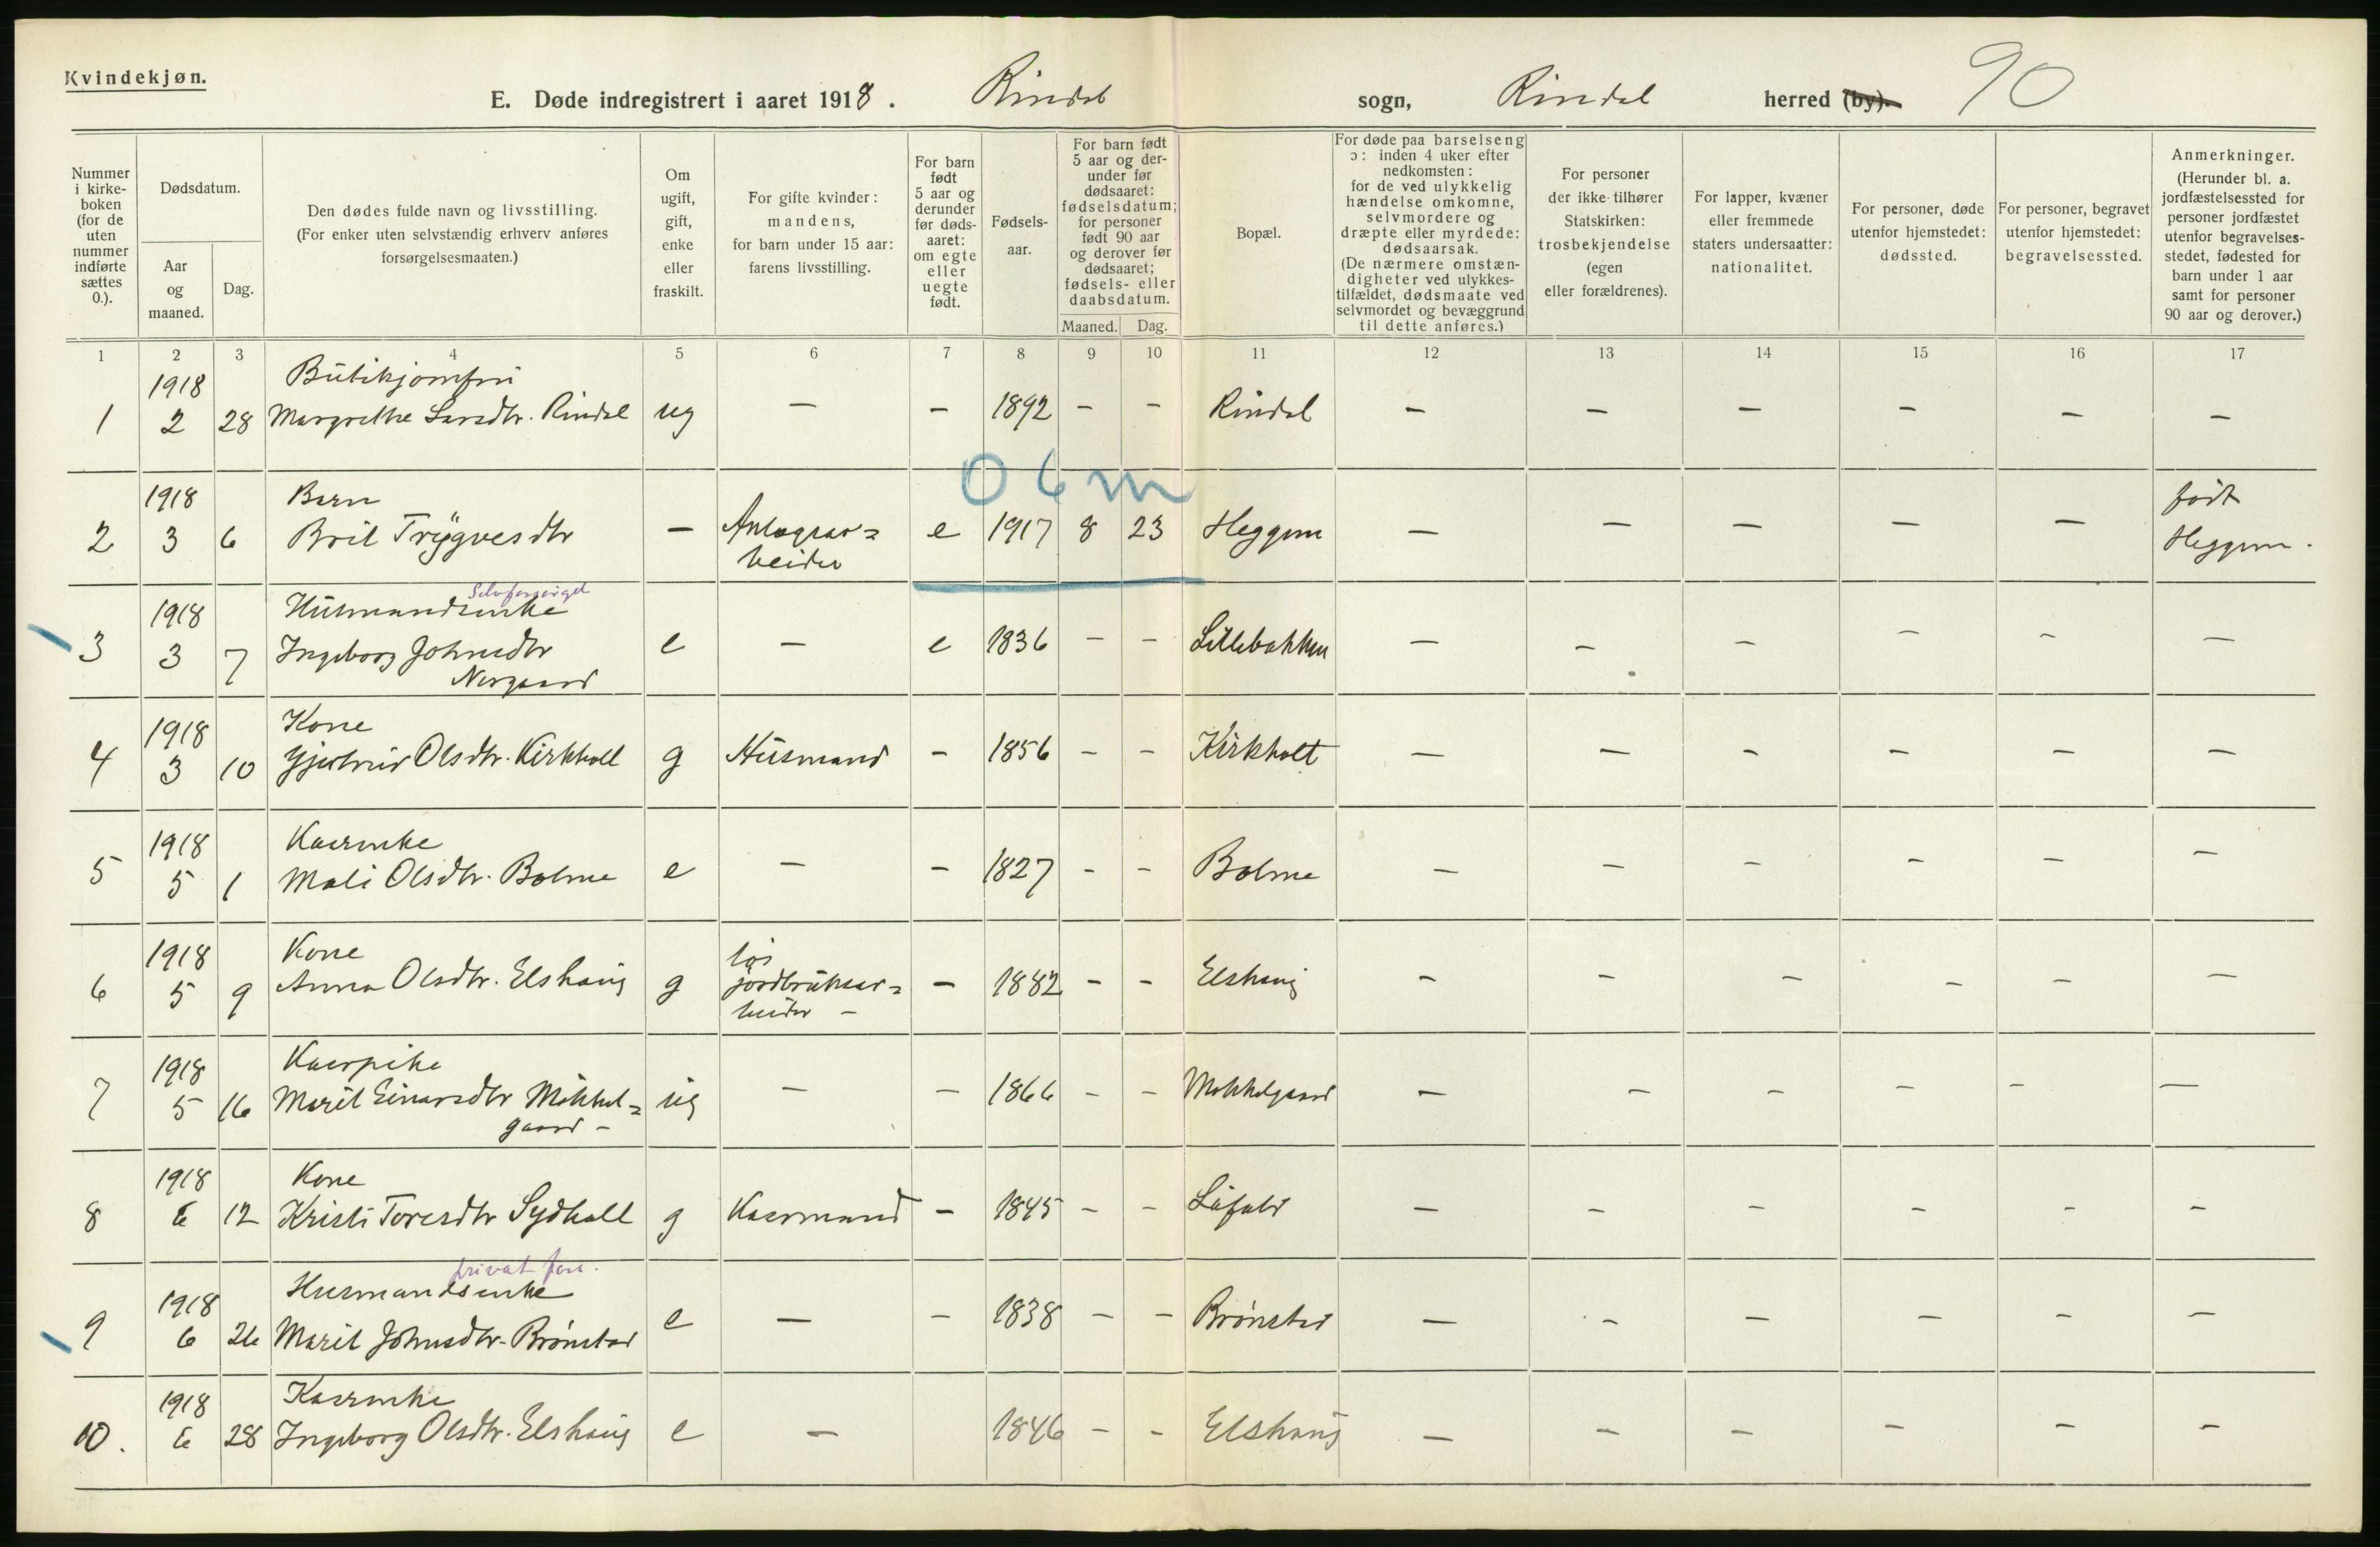 Kvindekjøn.
E. Døde indregistrert i aaret 1918. Rindal sogn, Rindal herred (by). 90
Nummer i kirke- boken (for de uten nummer indførte sættes 0.).
Dødsdatum.
Aar og maaned.
Dag.
Den dødes fulde navn og livsstilling.
(For enker uten selvstændig erhverv anføres
forsørgelsesmaaten.)
Om ugift, gift, enke eller fraskilt.
For gifte kvinder:
mandens,
for barn under 15 aar:
farens livsstilling.
For barn født 5 aar og derunder før døds- aaret: om egte eller uegte født.
Fødsels- aar.
For barn født 5 aar og der- under før dødsaaret: fødselsdatum; for personer født 90 aar og derover før dødsaaret; fødsels- eller daabsdatum.
Maaned. Dag.
Bopæl.
For døde paa barselseng
ɔ: inden 4 uker efter
nedkomsten:
for de ved ulykkelig
hændelse omkomne,
selvmordere og
dræpte eller myrdede:
dødsaarsak.
(De nærmere omstæn-
digheter ved ulykkes-
tilfældet, dødsmaate ved
selvmordet og bevæggrund
til dette anføres.)
For personer
der ikke tilhører
Statskirken:
trosbekjendelse
(egen
eller forældrenes).
For lapper, kvæner
eller fremmede
staters undersaatter:
nationalitet.
For personer, døde
utenfor hjemstedet:
dødssted.
For personer, begravet
utenfor hjemstedet:
begravelsessted.
Anmerkninger.
(Herunder bl. a.
jordfæstelsessted for
personer jordfæstet
utenfor begravelses-
stedet, fødested for
barn under 1 aar
samt for personer
90 aar og derover.)
1 2 3 4 5 6 7 8 9 10 11 12 13 14 15 16 17
1918 Butikjomfru
1 2 28 Margrethe Larsdtr. Rindal ug — — 1892 - - Rindal — — — — — —
0 6 m
1918 Barn født
2 3 6 Brit Trygvesdtr — Anlægsar= e 1917 8 23 Heggem — — — — — Heggem.
beider
Selvforsørget
1918 Husmandsenke
3 3 7 Ingeborg Johnsdtr e — e 1836 - - Lillebakken — — — — — —
Norgaard
1918 Kone
4 3 10 Gjertrud Olsdtr. Kirkholt g Husmand - 1856 - - Kirkholt — — — — — —
1918 Kaarenke
5 5 1 Mali Olsdtr. Bolme e — - 1827 - - Bolme — — — — — —
1918 Kone løs
6 5 9 Anna Olsdtr. Elshaug g jordbruksar= - 1882 - - Elshaug — — — — — —
beider -
1918 Kaarpike
7 5 16 Marit Einarsdtr Mokkel= ug — - 1866 - - Mokkelgaard — — — — — —
gaard -
1918 Kone
8 6 12 Kristi Toresdtr Sydhall g Kaarmand - 1845 - - — — — — — —
privat fors.
1918 Husmandsenke
9 6 26 Marit Johnsdtr. Brønstad e — - 1838 - - Brønstad — — — — — —
1918 Kaarenke
10. 6 28 Ingeborg Olsdtr. Elshaug e — 1846 - - Elshaug — — — — — —